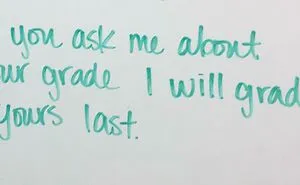 you ask me about
ur grade I will grad
yours last.